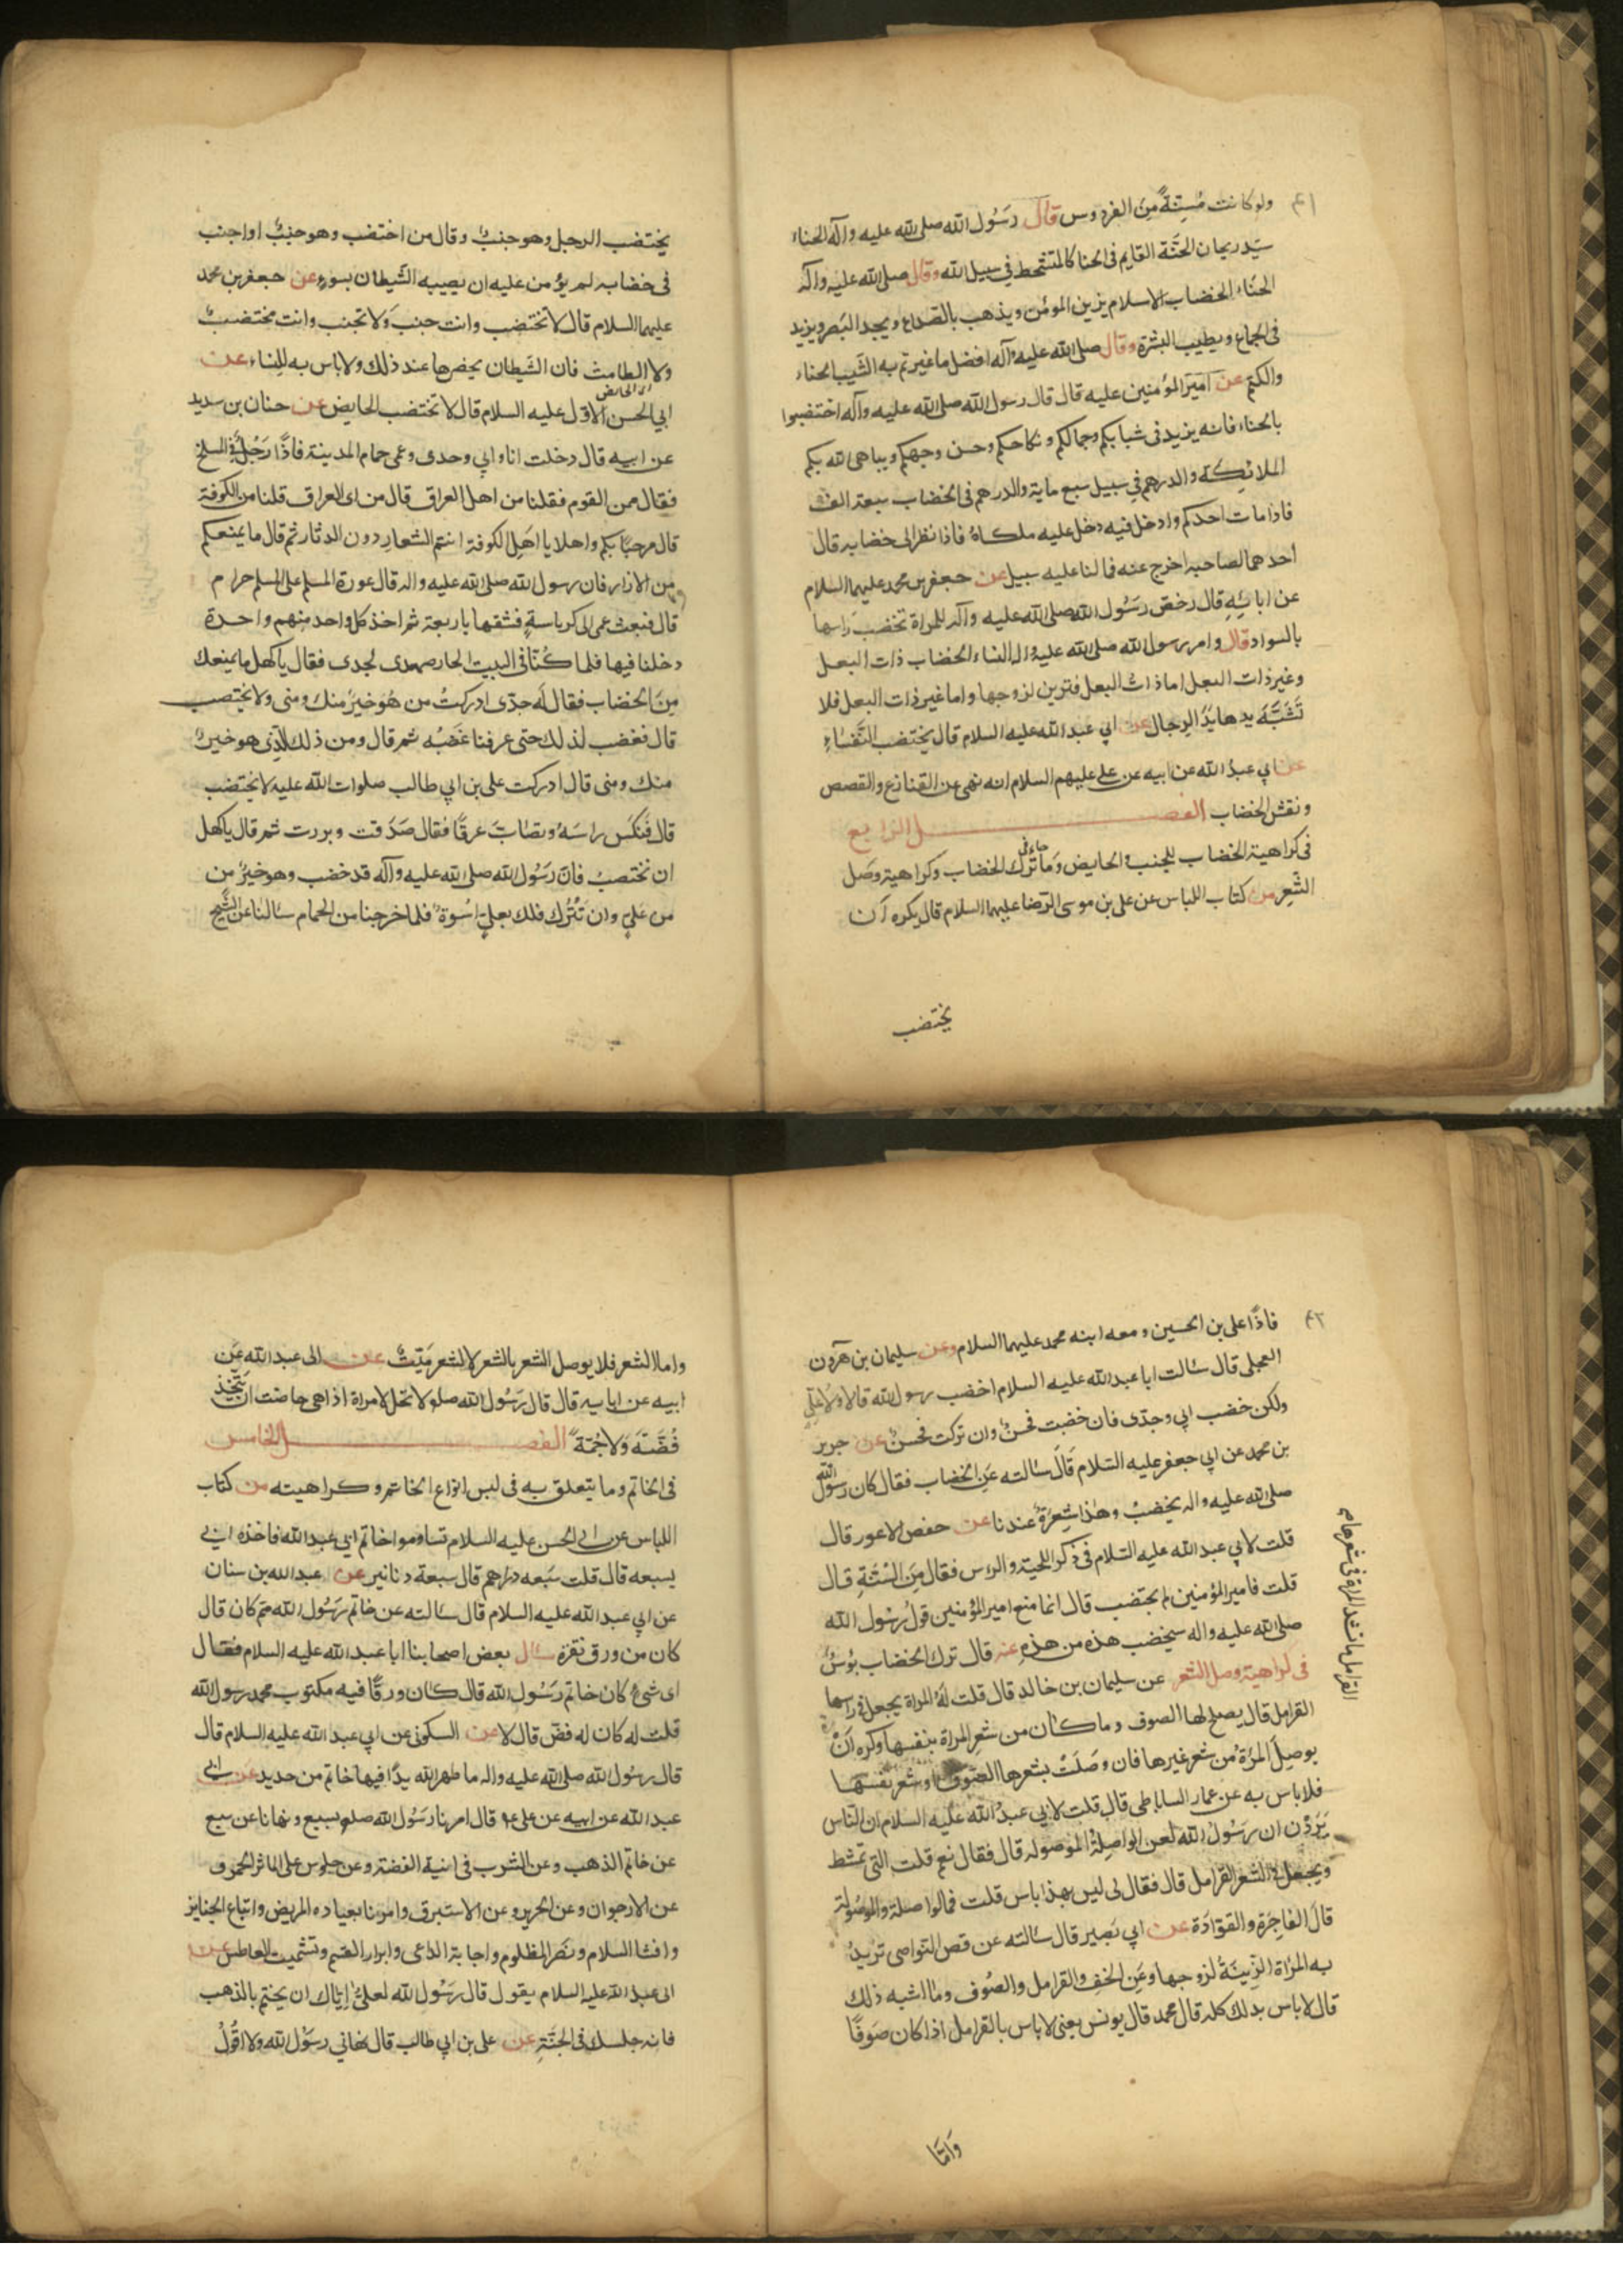 ٤١
ولو كانت مُسِنِّةً مِنَ الفردوس قال رَسُول الله صلى الله عليه وآله الحناء
سيّد ريحان الجنَّة القايم في الحنا كالمتشحط في سبيل الله وقال صلى الله عليه وآله
الحنّاء الخضاب الاسلام يزين المؤمن ويذهب بالصداع ويحد البَصر ويزيد
في الجماع ويطيب البشرة وقال صلى الله عليه وآله افضل ما غيرتم به الشّيب الحناء
والكتم عن اميرَ المؤمنين عليه قال قال رسول الله صلى الله عليه وآله اختضبوا
بالحناء فانه يزيد في شبابكم وجمالكم ونكاحكم وحسن وجهكم ويباهى الله بكم
الملائكة والدرهم في سبيل سبع ماية والدرهم في الخضاب سبعة الف
فاذا مات احدكم وادخل فيه دخل عليه ملكاه فاذا نظر الى خضابه قال
احدهما لصاحبه اخرج عنه فما لنا عليه سبيل عن جعفر بن محمد عليهما السلام
عن ابائه قال رخصّ رَسُول الله صلى الله عليه وآله للمراة تخضب رَاسها
بالسواد قال وامر رسول الله صلى الله عليه واله النساء الخضاب ذات البعل
وغير ذات البعل اما ذات البعل فتزين لزوجها واما غير ذات البعل فلا
تَشَبَّهَ يدها يَدُ الرجال عن ابي عبد الله عليه السلام قال يختضب النّفساءِ
عن ابي عبدُ الله عن ابيه عن علي عليهم السلام انه نهى عن القنازع والقصص
ونقش الخضاب الفصل الرابع
في كراهية الخضاب للجنب والحايض وَما جاء في ترك الخضاب وكراهية وصَل
الشَّعِر من كتاب اللباس عن علي بن موسى الرّضا عليهما السلام قال يكره اَن
يختضب
يختضب الرجل وهو جنبٌ وقال من اختضب وهو جنبٌ او اجنب
في خضابه لم يؤمن عليه ان يصيبه الشّيطان بسوء عن جعفر بن محمد
عليهما السلام قال لا تختضب وانت جنب وَلا تجنب وانت مختضبٌ
ولا الطامث فان الشّيطان يحضرها عند ذلك ولا باس به للنساء عن
ابي الحسن الاوّل عليه السلام قال لا تختضب الحايض عن حنان بن سديد
عن ابيه قال دخلت انا وابي وجدى وعمى حمام المدينة فاذًا رَجُل في المسلخ
فقال ممن القوم فقلنا من اهل العراق قال من اى العراق قلنا من الكوفة
قال مرحبًا بكم واهلا يا اهَل الكوفة انتم الشعار دون الدثار ثم قال ما يمنعكم
من الازار فان رسول الله صلى الله عليه واله قال عورة المسلم على المسلم حرام
قال فبعث عمى الى كرباسةٍ فشقها باربعة ثم اخذ كل واحد منهم واحدة
دخلنا فيها فلما كنّا في البيت الحار صمدى لجدى فقال يا كهل ما يمنعك
مِنَ الخضاب فقال لَه جدّى ادركتُ من هُوَ خيرٌ منك ومنى ولا يختصب
قال فغضب لذلك حتى عرفنا غضَبُه ثم قال ومن ذلك الّذى هو خيرٌ
منك ومنى قال ادركت على بن ابي طالب صلوات الله عليه لا يختضب
قال فنَكَسَ راسَهُ وتصَابَّ عرقًا فقال صَدَقت وبررت ثم قال يا كهل
ان تختصبْ فانّ رَسُول الله صلى الله عليه وآله قد خضب وهو خيرٌ من
من عَليٍ وان تَتْرُك فلك بعليٍّ اسُوة فلما خرجنا من الحمام سئالنا عن الشَّيخ
٤٢
فاذًا على بن الحسين ومعه ابنه محمد عليهما السلام وعن سليمان بن هرون
العجلى قال سئالت ابا عبد الله عليه السلام اخضب رسول الله قال لا ولا عَلى
ولكن خضب ابي وجدّى فان خضبت فحسنٌ وان تركت فحسنٌ عن جرير
بن محمد عن ابي جعفر عليه السلام قَالَ سئالته عَن الخضاب فقال كان رسول الله
صلى الله عليه واله يخضبُ وهذا شعرُهُ عندنا عن حفص الاعور قال
قلت لابي عبد الله عليه السّلام في ذكر اللحية والراس فقال مِنَ السُّنَّةِ قال
قلت فامير المؤمنين لم يختضب قال انما منع امير المؤمنين قولُ رسُول الله
صلى الله عليه واله سيخضب هذه من هذهِ عنه قال ترك الخضاب بُوسٌ
في كراهية وصل الشعر عن سليمان بن خالد قال قلت لَهُ المراة يجعل في راسها
القرامل قال يصلح لها الصوف وما كان من شعِر المراة بنفسها وكره اَنْ
يوصِلَ المرْةُ من شعر غيرها فان وصَلَتْ بشعرها الصّوف او شعر نفسها
فلا باس به عن عمار الساباطى قال قلت لابي عبدُ الله عليه السلام ان النّاس
يَرَوْن ان رَسولُ الله لَعن الواصِلةُ الموصوله قال فقال نعم قلت التى تمشط
ويجعل في الشعر القرامل قال فقال لى ليس بهذا باس قلت فما الواصلة والموصُولة
قال الفاجِرَة والقوّادَة عن ابي بَصير قال سئالته عن قص النّواصى تريدُ
به المرْاة الزِّينَة لزوجها وعَنِ الخفِ والقرامل والصُوف وما اشبه ذلك
قال لا باس بذلك كله قال محمد قال يونس يعنى لا باس بالقرامل اذا كان صَوفًا
القرامل ما تشد المرأة في شعرها
وَامّا
واما الشعر فلا يوصل الشعر بالشعر لا الشعر مَيّتٌ عن ابى عبد الله عَن
ابيه عن ابايه قال قال رَسُول الله صلع لا تحل لامراة اذا هى حاضت ان تتّخِذ
قُصَّةَ وَلا جُمّةً الفصل الخامس
في الخاتم وما يتعلق به في لبس انواع الخاتم وكراهيته من كتاب
اللباس عن ابى الحسن عليه السلام تساوموا خاتم ابي عبد الله فاخذه ابي
بسبعه قال قلت سَبعه دراهم قال سبعة دنانير عن عبد الله بن سنان
عن ابي عبد الله عليه السلام قال سئالته عن خاتم رَسُول الله مم كان قال
كان من ورق نقرَة سئال بعض اصحابنا ابا عبد الله عليه السلام فقال
اى شئ كان خاتم رَسُول الله قال كان ورقًا فيه مكتوب محمد رسول الله
قلت له كان له فصّ قال لا عن السكونى عن ابي عبد الله عليه السلام قال
قال رسُول الله صلى الله عليه واله ما طهر الله يدًا فيها خاتم من حديد عن ابى
عبد الله عن ابيه عن على ع قال امرنا رَسُول الله صلع بسبع ونهانا عن سبع
عن خاتم الذهب وعن الشرب في انية الفضة وعن جلوس على المياثر الحمر
عن الارجوان وعن الحرير وعن الاستبرق وامرنا بعياده المريض واتباع الجنايز
وافشا السلام ونصَر المظلوم واجابة الداعى وابرار القسم وتشميت العاطس عن
ابى عبد الله عليه السلام يقول قال رَسُول الله لعلىٍّ اِيّاك ان يختم بالذهب
فانه حليتك في الجَنّةِ عن على بن ابي طالب قال نهاني رسوُل الله ولا اقولُ